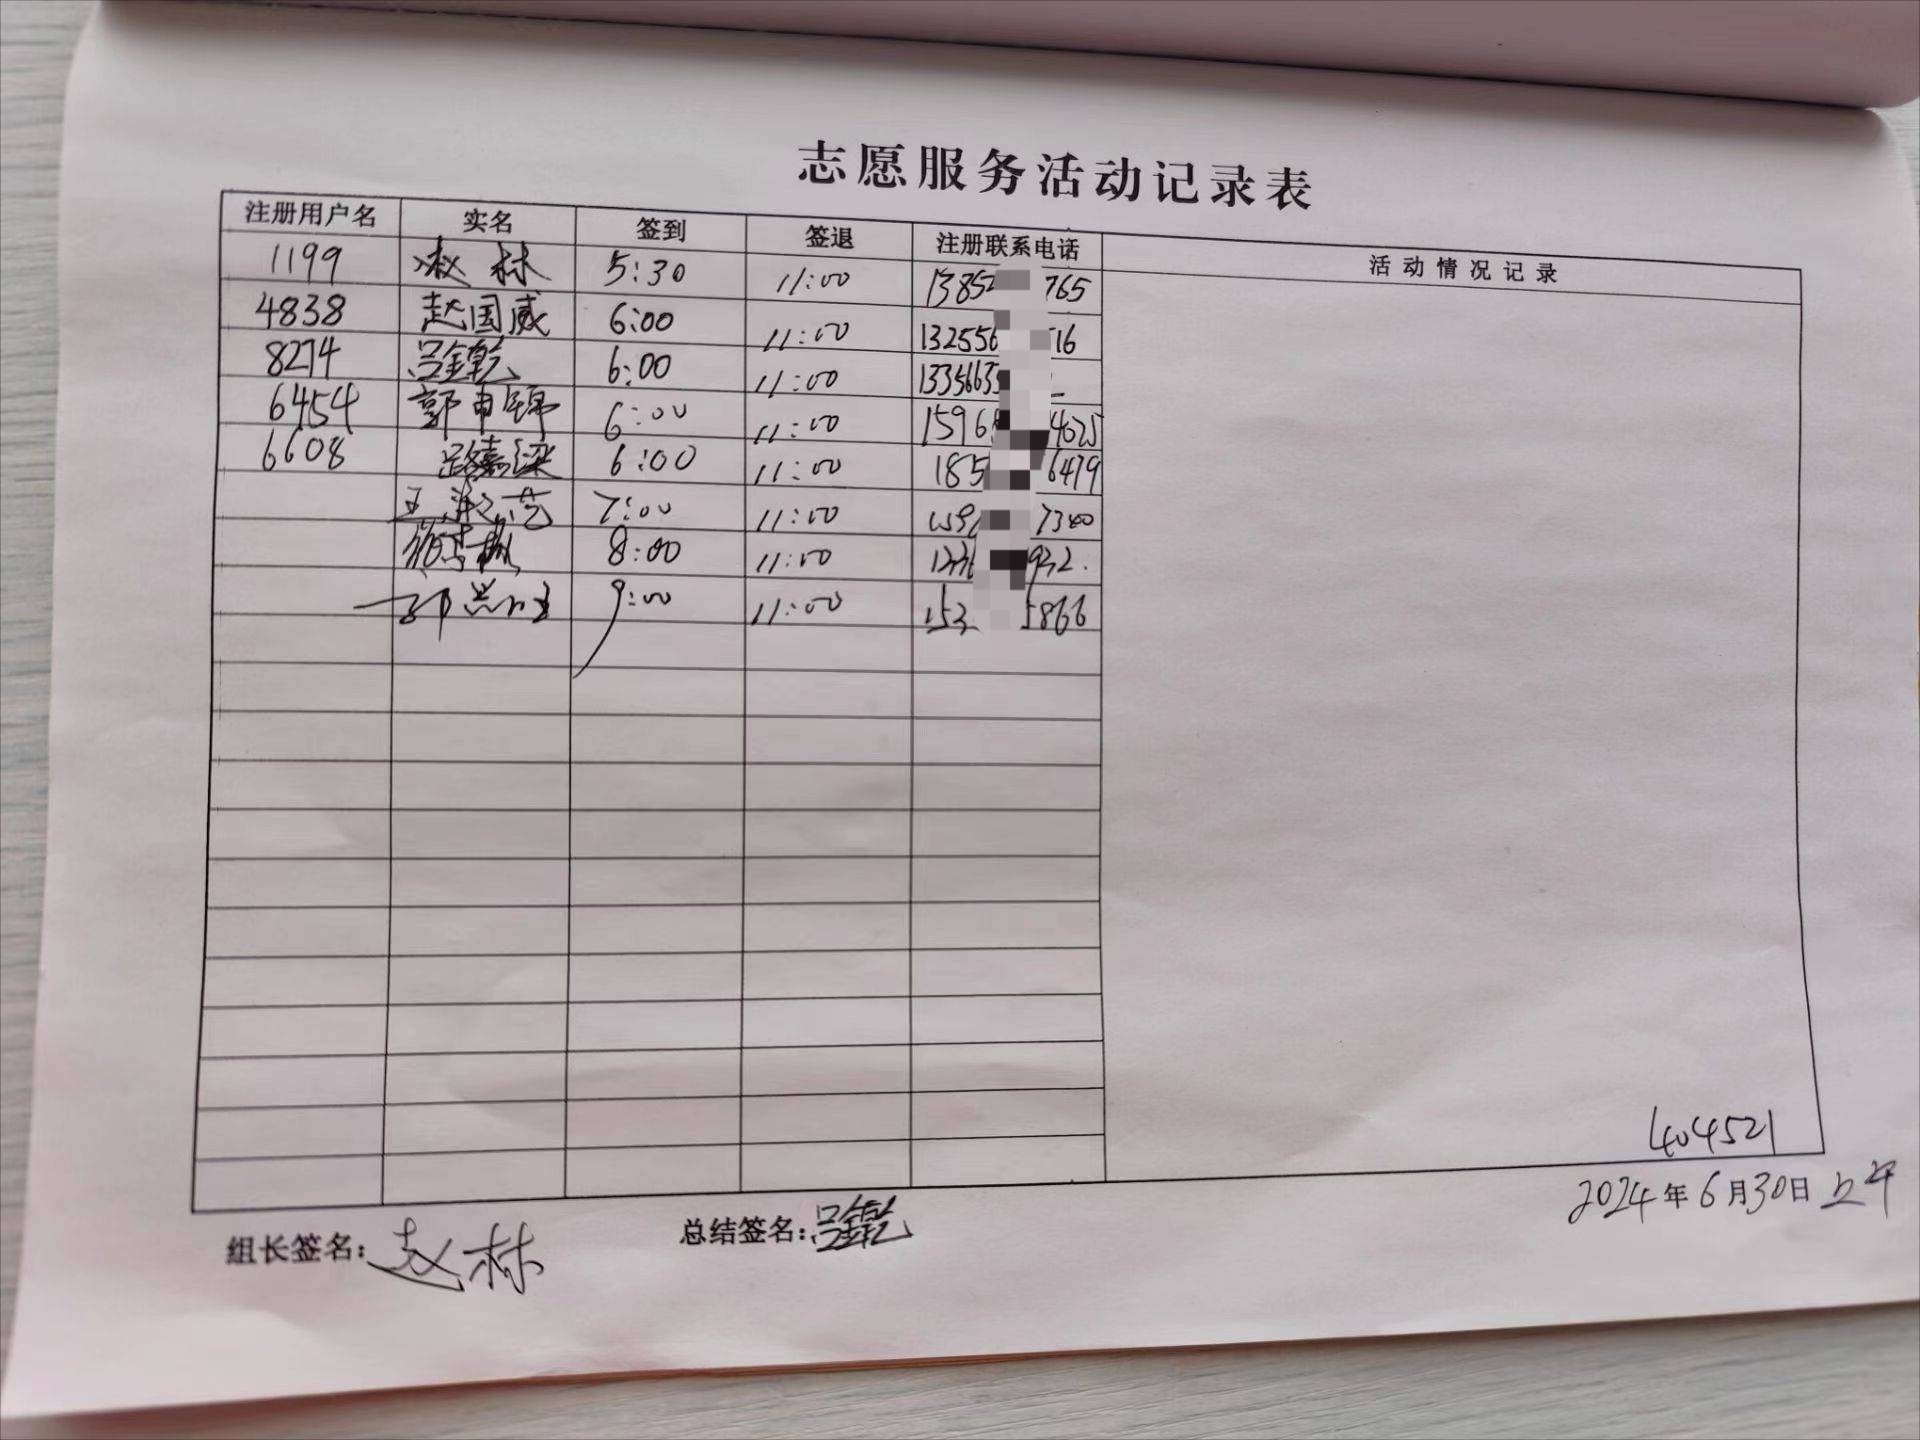 志愿服务活动记录表
注册用户名 实名 签到 签退 注册联系电话 活动情况记录
1199 赵林 5:30 11:00 1385 765
4838 赵国威 6:00 11:00 13255 16
8274 吕金乾 6:00 11:00 133563
6454 郭申锦 6:00 11:00 1596 4025
6608 路嘉梁 6:00 11:00 185 6479
7:00 11:00 7340
8:00 11:00 932.
9:00 11:00 153 5866
404521
2024年6月30日上午
组长签名: 赵林 总结签名: 吕金乾